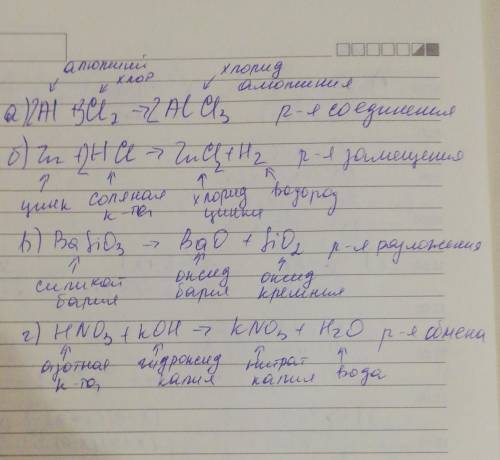 алюминий
хлор
хлорид
алюминия
а) 2Al + 3Cl₂ → 2AlCl₃ р-я соединения
б) Zn + 2HCl → ZnCl₂ + H₂ р-я замещения
цинк соляная к-та хлорид цинка водород
в) BaSiO₃ → BaO + SiO₂ р-я разложения
силикат бария оксид бария оксид кремния
г) HNO₃ + KOH → KNO₃ + H₂O р-я обмена
азотная к-та гидроксид калия нитрат калия вода